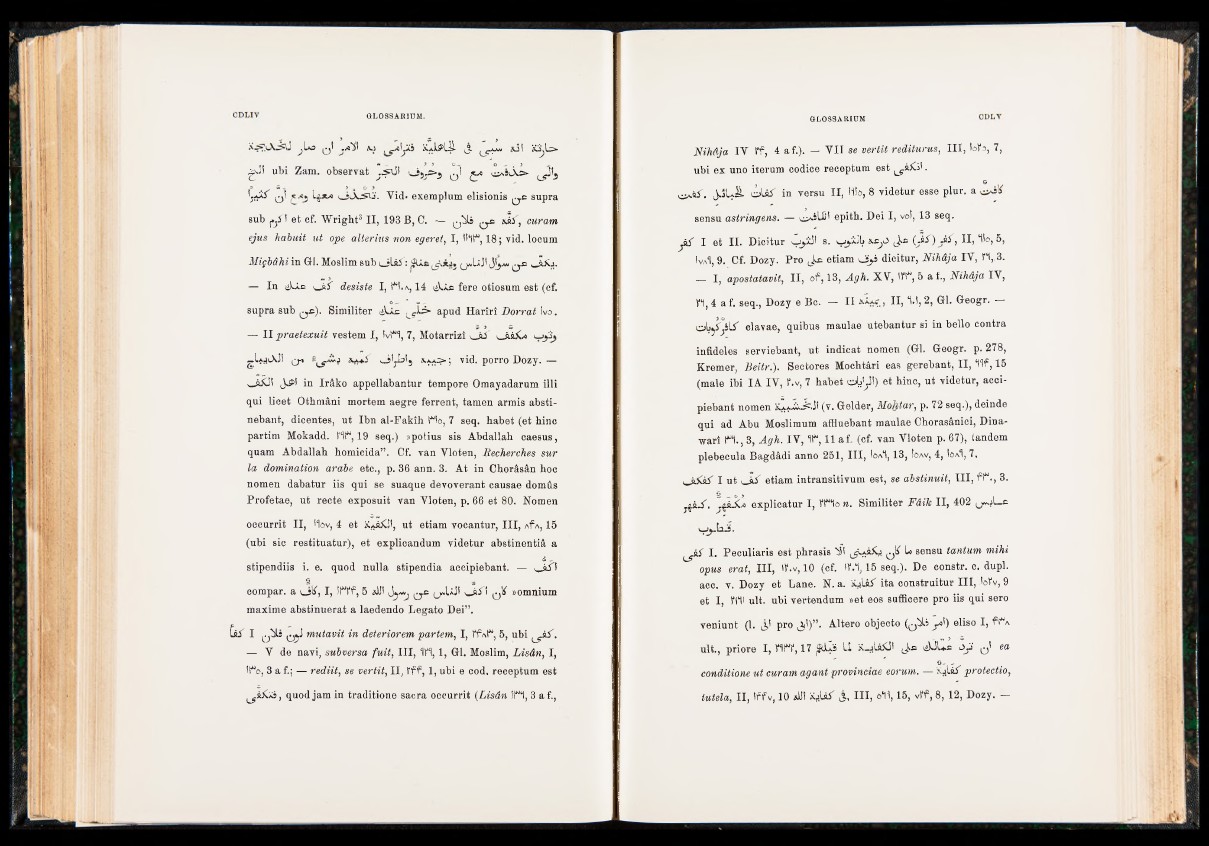 CDLIV GLOSSARIUM.
حارثة انه سبى فى الجاهلية فترامى به الامر ان صار لخديجة
الخ ubi Zam. observat والى حذفت مع ان وحروف الجر
تحذف معها ومع ان كثيرا. Vid. exemplum elisionis عن supra
sub كرم et cf. Wright³ II, 193 B, C. — كفه عن فلان, curam
ejus habuit ut ope alterius non egeret, I, 18; vid. locum
Miçbâhi in Gl. Moslim sub كفاف : يكف عن سؤال الناس ويغنى عنهم.
— In كف عنك desiste I, 14 عنك fere otiosum est (cf.
supra sub عن). Similiter خل عنك apud Harîrî Dorrat ١٧٥.
— II praetexuit vestem I, 7, Motarrizî كف وثوب مكفف
جيبه واطراف كميه بشىء من الديباج; vid. porro Dozy. —
اهل الكف in Irâko appellabantur tempore Omayadarum illi
qui licet Othmâni mortem aegre ferrent, tamen armis absti-
nebant, dicentes, ut Ibn al-Fakîh ٣١٥, 7 seq. habet (et hinc
partim Mokadd. ٢٩٣, 19 seq.) »potius sis Abdallah caesus,
quam Abdallah homicida”. Cf. van Vloten, Recherches sur
la domination arabe etc., p. 36 ann. 3. At in Chorâsân hoc
nomen dabatur iis qui se suaque devoverant causae domûs
Profetae, ut recte exposuit van Vloten, p. 66 et 80. Nomen
occurrit II, ١٩٥٧, 4 et الكفية, ut etiam vocantur, III, ٨٤٨, 15
(ubi sic restituatur), et explicandum videtur abstinentiâ a
stipendiis i. e. quod nulla stipendia accipiebant. — اكف
compar. a كاف, I, 5 كان اكف الناس عن رسول الله »omnium
maxime abstinuerat a laedendo Legato Dei”.
كفأ I لون فلان mutavit in deteriorem partem, I, 5, ubi كفى.
— V de navi, subversa fuit, III, 1, Gl. Moslim, Lisân, I,
١٣٥, 3 a f.; — rediit, se vertit, II, 1, ubi e cod. receptum est
فتكفى, quod jam in traditione sacra occurrit (Lisân ١٣٦, 3 a f.,
GLOSSARIUM CDLV
Nihâja IV ٢٤, 4 a f.). — VII se vertit rediturus, III, 7,
ubi ex uno iterum codice receptum est انكفى.
كفت. كفات الخيل in versu II, ١٢١٥, 8 videtur esse plur. a كفت
sensu astringens. — الكافت epith. Dei I, ٧٥١, 13 seq.
كفر I et II. Dicitur كفر (كفر) على درعه بالثوب s. الثوب, II, ٦١٥, 5,
١٧٨٦, 9. Cf. Dozy. Pro على etiam فوق dicitur, Nihâja IV, ٢٦, 3.
— I, apostatavit, II, ٥٤, 13, Agh. XV, ١٢٣, 5 a f., Nihâja IV,
٢٦, 4 a f. seq., Dozy e Bc. — II ٦٠١, 2, Gl. Geogr. —
كافركوبات clavae, quibus maulae utebantur si in bello contra
infideles serviebant, ut indicat nomen (Gl. Geogr. p. 278,
Kremer, Beitr.). Sectores Mochtâri eas gerebant, II, ٦٩٤, 15
(male ibi IA IV, ٢٠٧, 7 habet) et hinc, ut videtur, acci-
piebant nomen الخشبية (v. Gelder, Moḫtar, p. 72 seq.), deinde
qui ad Abu Moslimum affluebant maulae Chorasânici, Dina-
warî ٣٦٠, 3, Agh. IV, ٩٣, 11 a f. (cf. van Vloten p. 67), tandem
plebecula Bagdâdi anno 251, III, ١٥٨٦, 13, ١٥٨٧, 4, ١٥٨٩, 7.
كفكف I ut كف etiam intransitivum est, se abstinuit, III, ٤٣٠, 3.
كفهر. مكفهر explicatur I, ٢٣٦٥ n. Similiter Fâïk II, 402 عابس
قطوب.
كفى I. Peculiaris est phrasis ما كان يكفينى الا sensu tantum mihi
opus erat, III, ١٢٠٧, 10 (cf. ١٢٠٦, 15 seq.). De constr. c. dupl.
acc. v. Dozy et Lane. N. a. كفاية ita construitur III, ١٥٢٧, 9
et I, ٢٦٩١ ult. ubi vertendum »et eos sufficere pro iis qui sero
veniunt (l. اذ pro اذا)”. Altero objecto (امر فلان) eliso I, ٤٣٨
ult., priore I, 17 ان ترد عمالك على الكفاية لما قبلهم ea
conditione ut curam agant provinciae eorum. — كفاية protectio,
tutela, II, ١٤٤٧, 10 فى كفاية الله, III, ٥٦٦, 15, ٧٢٤, 8, 12, Dozy. —